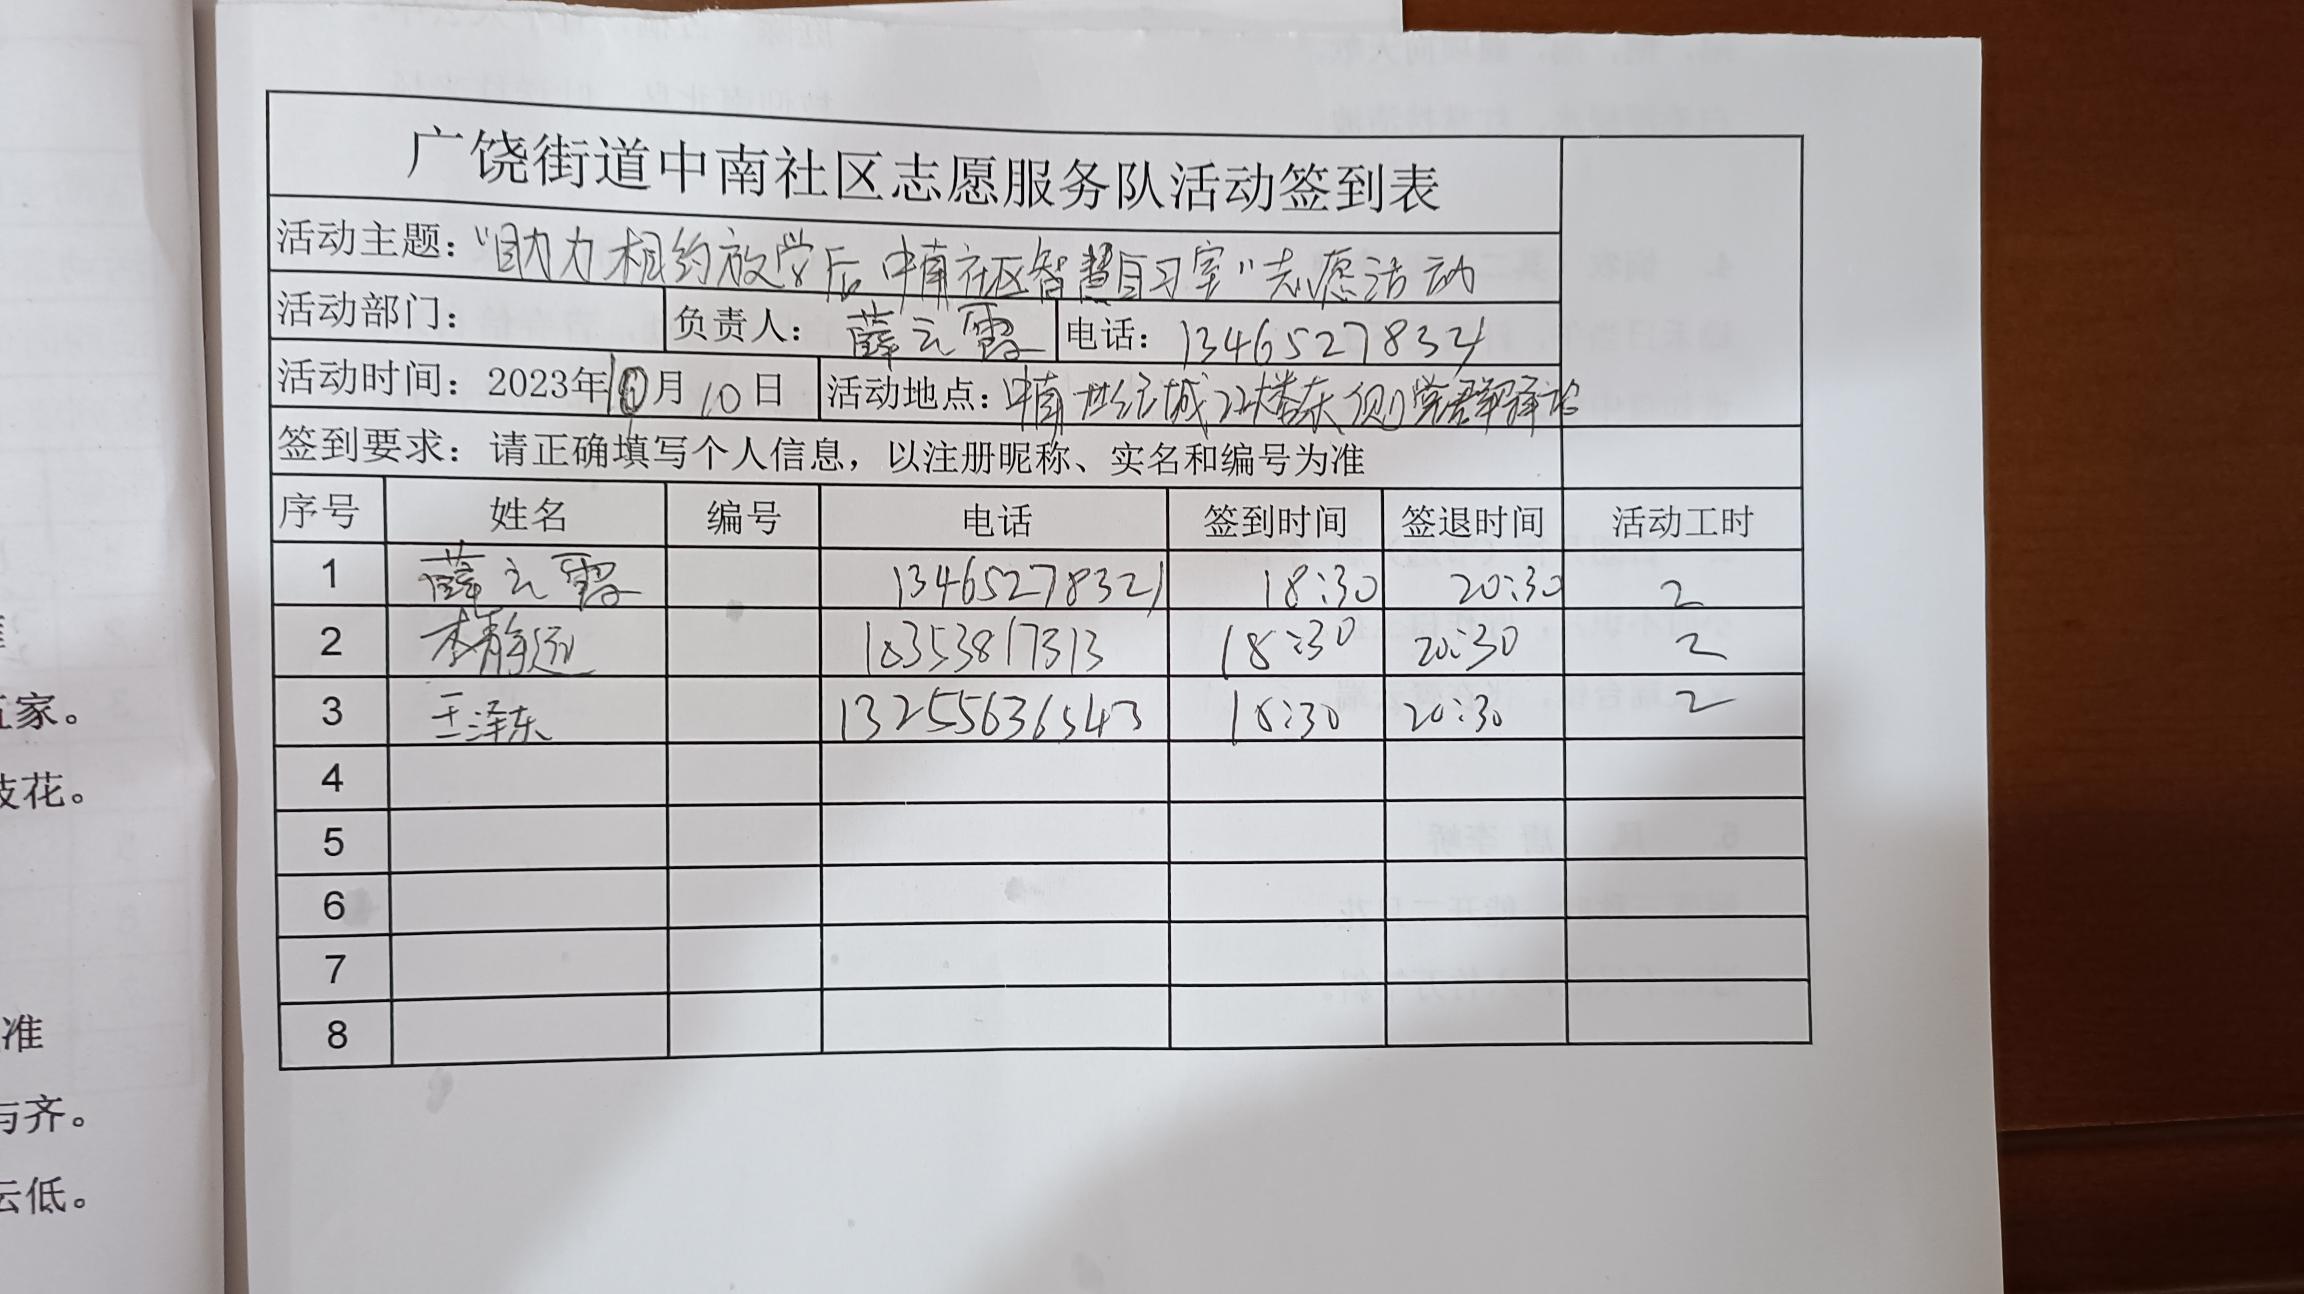 广饶街道中南社区志愿服务队活动签到表
活动主题：“助力相约放学后 中南社区智慧自习室”志愿活动
活动部门： 负责人：薛云霞 电话：13465278321
活动时间：2023年10月10日 活动地点：中南世纪城22楼东侧党群
签到要求：请正确填写个人信息，以注册昵称、实名和编号为准
序号 姓名 编号 电话 签到时间 签退时间 活动工时
1 薛云霞 13465278321 18:30 20:30 2
2 李静远 18353817313 18:30 20:30 2
3 王泽东 13255636543 18:30 20:30 2
4
5
6
7
8
家。
花。
准
与齐。
云低。